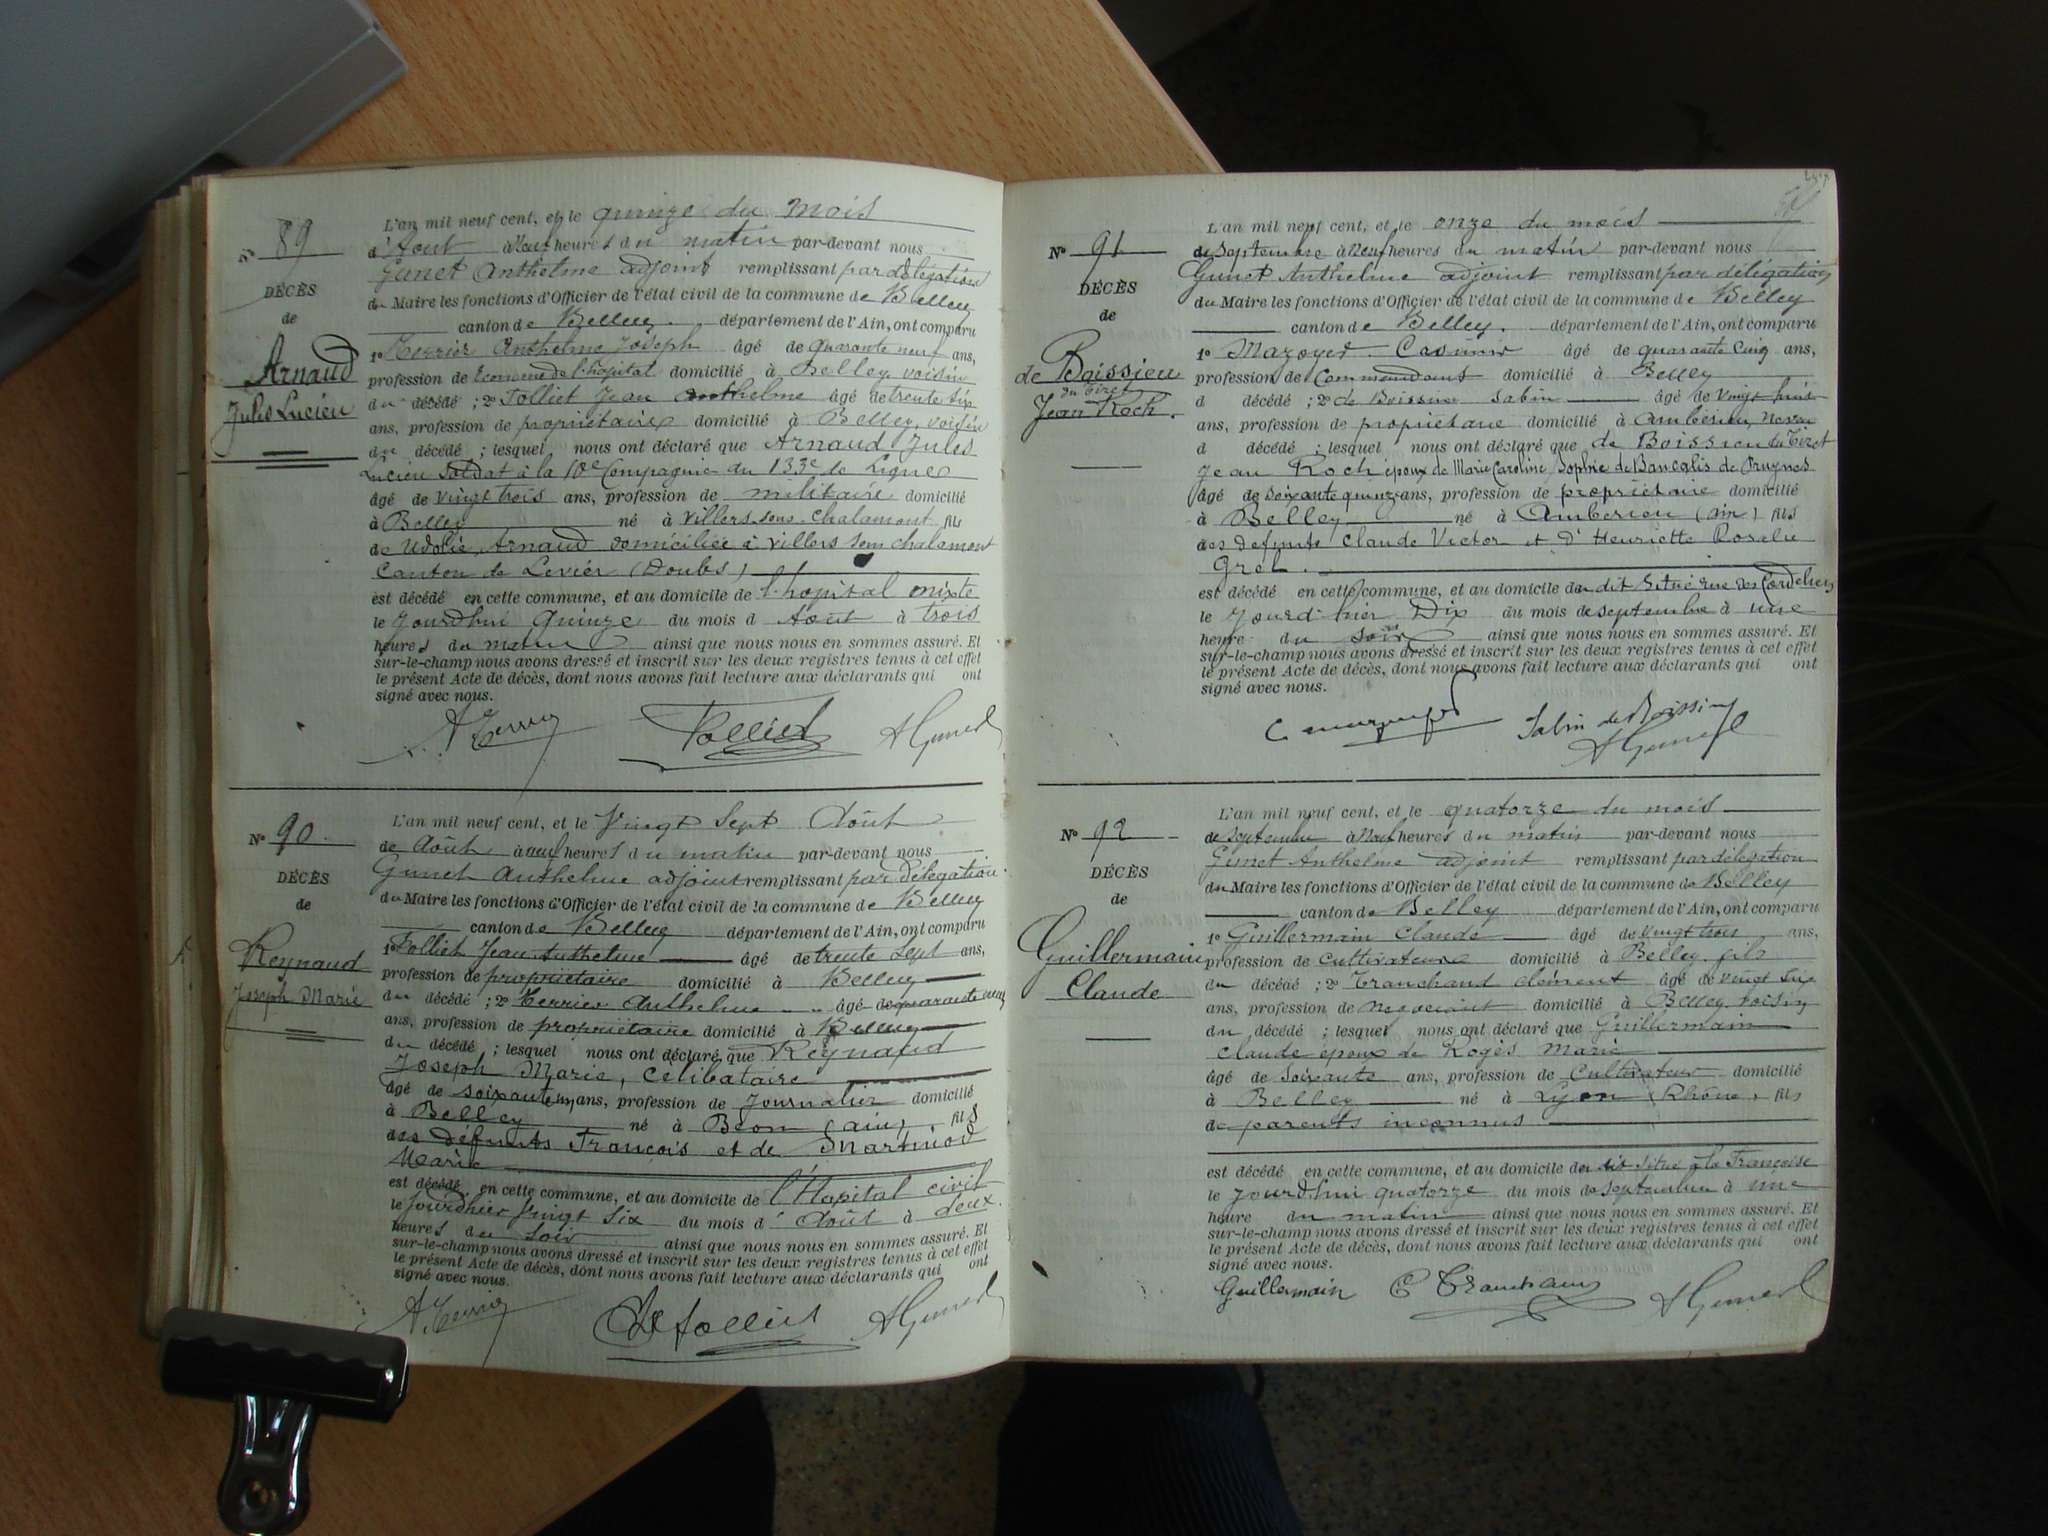 N° 89
DÉCÈS
de
Arnaud
Jules Lucien
L'an mil neuf cent, et le quinze du mois
d'Aout à neuf heures du matin par-devant nous
Gunet Anthelme adjoint remplissant par délégation
du Maire les fonctions d'Officier de l'état civil de la commune de Belley
canton de Belley département de l'Ain, ont comparu
1° Terrier Anthelme Joseph âgé de quarante neuf ans,
profession de Econome de l'hopital domicilié à Belley voisin
du décédé ; 2° Folliet Jean Anthelme âgé de trente six
ans, profession de propriétaire domicilié à Belley, voisin
du décédé ; lesquel nous ont déclaré que Arnaud Jules
Lucien soldat à la 10e Compagnie du 133e de Ligne
âgé de vingt trois ans, profession de militaire domicilié
à Belley né à Villers sous chalamont fils
de Arnaud domiciliée à Villers sous chalamont
Canton de Levier (Doubs)
est décédé en cette commune, et au domicile de l'hopital mixte
le jourd'hui Quinze du mois d Août à trois
heures du matin ainsi que nous nous en sommes assuré. Et
sur-le-champ nous avons dressé et inscrit sur les deux registres tenus à cet effet
le présent Acte de décès, dont nous avons fait lecture aux déclarants qui ont
signé avec nous.
A. Terrier Folliet A Gunet
N° 90
DÉCÈS
de
Reynaud
Joseph Marie
L'an mil neuf cent, et le Vingt Sept Août
de Août à neuf heures du matin par-devant nous
Gunet Anthelme adjoint remplissant par délégation
du Maire les fonctions d'Officier de l'état civil de la commune de Belley
canton de Belley département de l'Ain, ont comparu
1° Folliet Jean Anthelme âgé de trente sept ans,
profession de propriétaire domicilié à Belley
du décédé ; 2° Terrier Anthelme âgé de quarante neuf
ans, profession de propriétaire domicilié à Belley
du décédé ; lesquel nous ont déclaré que Reynaud
Joseph Marie, célibataire
âgé de soixante ans, profession de Journalier domicilié
à Belley né à Béon (ain) fils
des défunts François et de Martinod
Marie
est décédé en cette commune, et au domicile de l'Hopital civil
le jourd'hier Vingt six du mois d'Août à deux
heures du soir ainsi que nous nous en sommes assuré. Et
sur-le-champ nous avons dressé et inscrit sur les deux registres tenus à cet effet
le présent Acte de décès, dont nous avons fait lecture aux déclarants qui ont
signé avec nous.
A. Terrier Folliet A Gunet
N° 91
DÉCÈS
de
de Boissieu
du Tiret
Jean Roch.
L'an mil neuf cent, et le onze du mois
de Septembre à neuf heures du matin par-devant nous
Gunet Anthelme adjoint remplissant par délégation
du Maire les fonctions d'Officier de l'état civil de la commune de Belley
canton de Belley. département de l'Ain, ont comparu
1° Mazoyer Casimir âgé de quarante cinq ans,
profession de Commandant domicilié à Belley
d décédé ; 2° de Boissieu Sabin âgé de vingt huit
ans, profession de propriétaire domicilié à Ambérieu, neveu
d décédé ; lesquel nous ont déclaré que de Boissieu du Tiret
Jean Roch époux de Marie Caroline Sophie de
âgé de soixante quinze ans, profession de propriétaire domicilié
à Belley né à Ambérieu (Ain) fils
des défunts Claude Victor et d'Henriette Rosalie
Grel.
est décédé en cette commune, et au domicile du dit Situé rue des Cordeliers
le jourd'hier Dix du mois de septembre à une
heure du soir ainsi que nous nous en sommes assuré. Et
sur-le-champ nous avons dressé et inscrit sur les deux registres tenus à cet effet
le présent Acte de décès, dont nous avons fait lecture aux déclarants qui ont
signé avec nous.
Sabin de Boissieu
A Gunet
N° 92
DÉCÈS
de
Guillermain
Claude
L'an mil neuf cent, et le quatorze du mois
de septembre à neuf heures du matin par-devant nous
Gunet Anthelme adjoint remplissant par délégation
du Maire les fonctions d'Officier de l'état civil de la commune de Belley
canton de Belley département de l'Ain, ont comparu
1° Guillermain Claude âgé de vingt trois ans,
profession de cultivateur domicilié à Belley fils
du décédé ; 2° Tranchand Clément âgé de vingt six
ans, profession de negociant domicilié à Belley voisin
du décédé ; lesquel nous ont déclaré que Guillermain
Claude époux de Rogès Marie
âgé de soixante ans, profession de Cultivateur domicilié
à Belley né à Lyon (Rhône) fils
de parents inconnus
est décédé en cette commune, et au domicile du dit situé à la Française
le jourd'hui quatorze du mois de septembre à une
heure du matin ainsi que nous nous en sommes assuré. Et
sur-le-champ nous avons dressé et inscrit sur les deux registres tenus à cet effet
le présent Acte de décès, dont nous avons fait lecture aux déclarants qui ont
signé avec nous.
Guillermain C Tranchand A Gunet